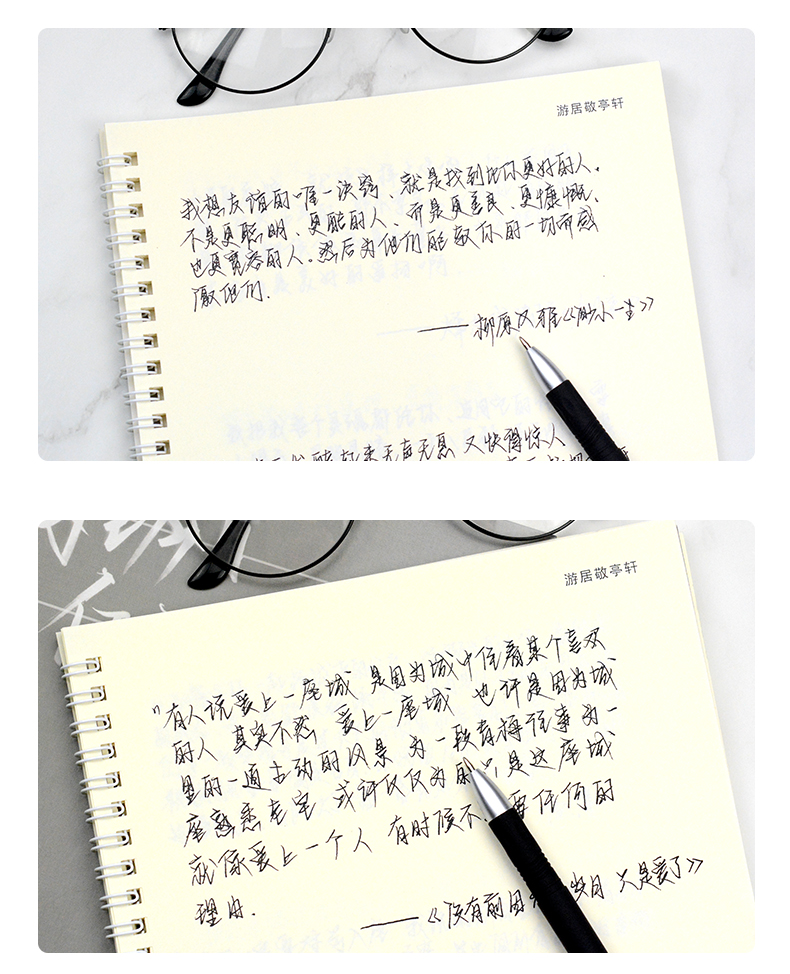 游居敬亭轩
我想友谊的唯一诀窍、就是找到比你更好的人。
不是更聪明、更酷的人、而是更善良、更慷慨、
也更宽容的人。然后为他们能教你的一切而感
激他们.
——柳原汉雅《渺小一生》
无声无息 又快得惊人
游居敬亭轩
"有人说爱上一座城 是因为城中住着某个喜欢
的人 其实不然 爱上一座城 也许是因为城
里的一道生动的风景 为一段青梅往事 为一
座熟悉老宅 或许仅仅为的只是这座城
就像爱上一个人 有时候不 要任何的
理由.
——《没有前因 只是爱了》